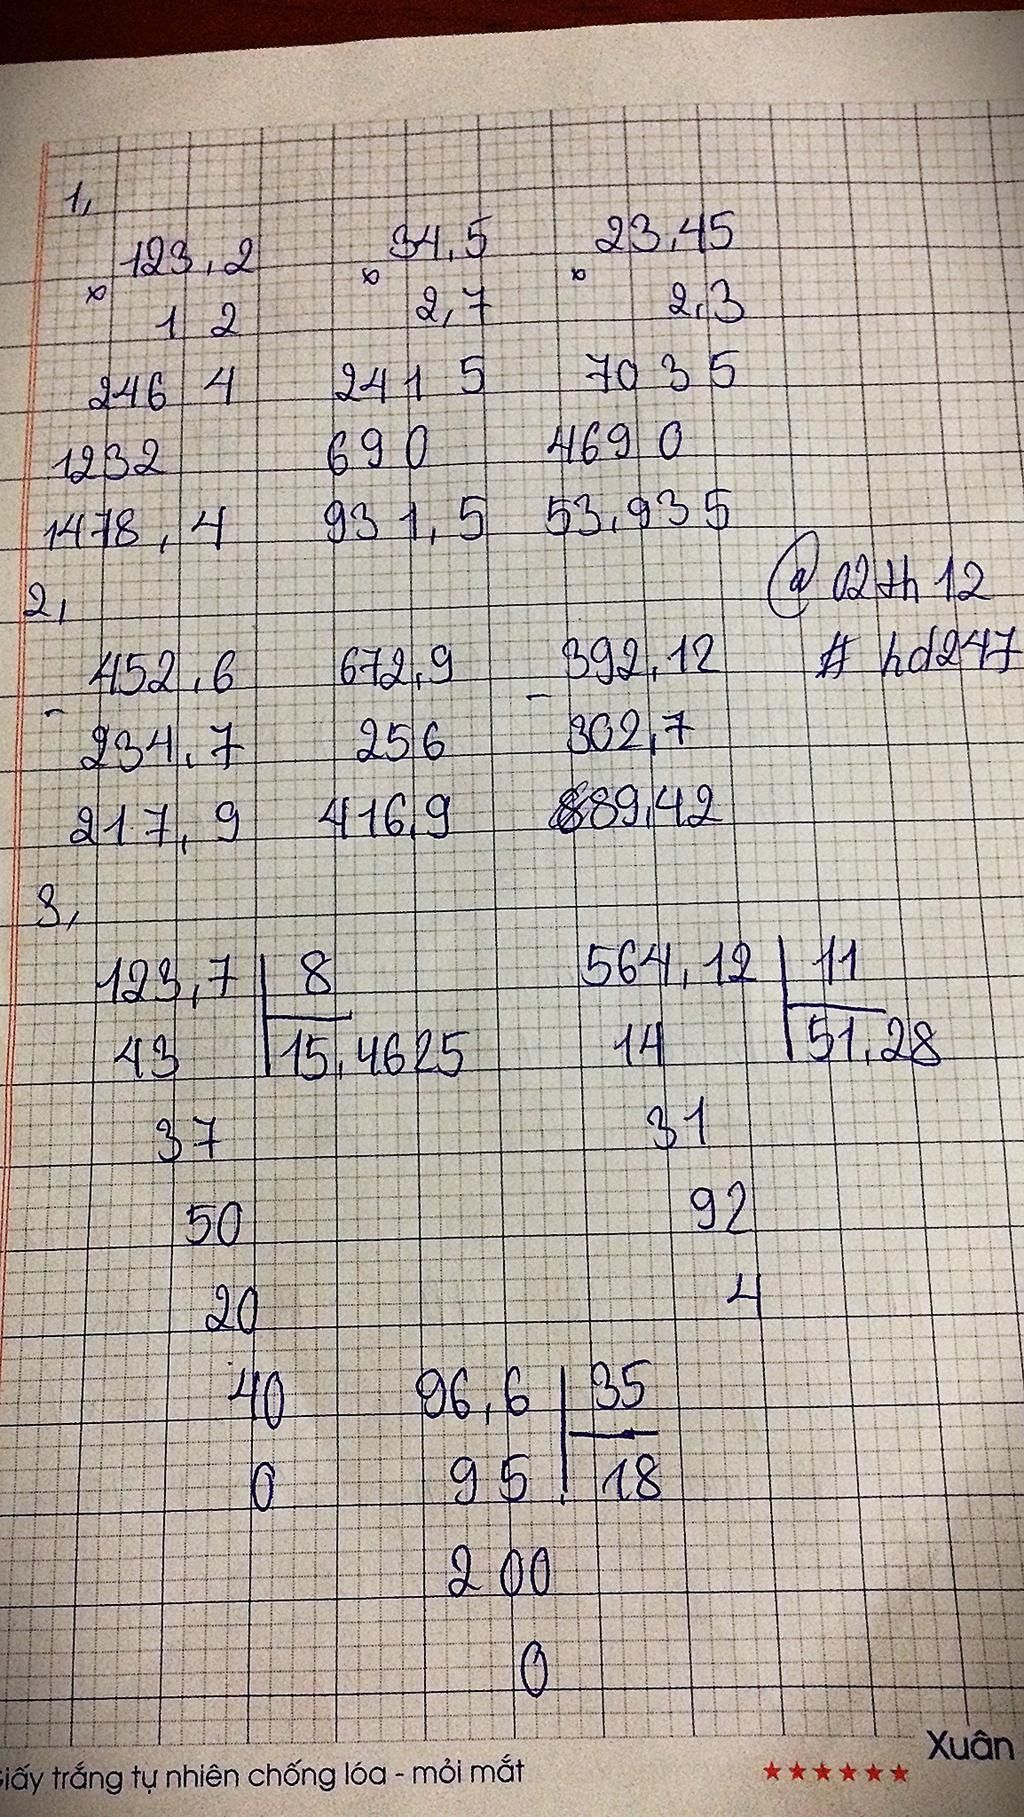 1,
123,2 34,5 23,45
x 12 x 2,7 x 2,3
2464 2415 7035
1232 690 4690
1478,4 931,5 53,935
@02th12
2,
452,6 672,9 392,12 # hd247
- 234,7 256 - 302,7
217,9 416,9 89,42
3,
123,7 8 564,12 11
43 15,4625 14 51,28
37 31
50 92
20 4
40 96,6 35
0 95 18
200
0
Xuân
Giấy trắng tự nhiên chống lóa - mỏi mắt